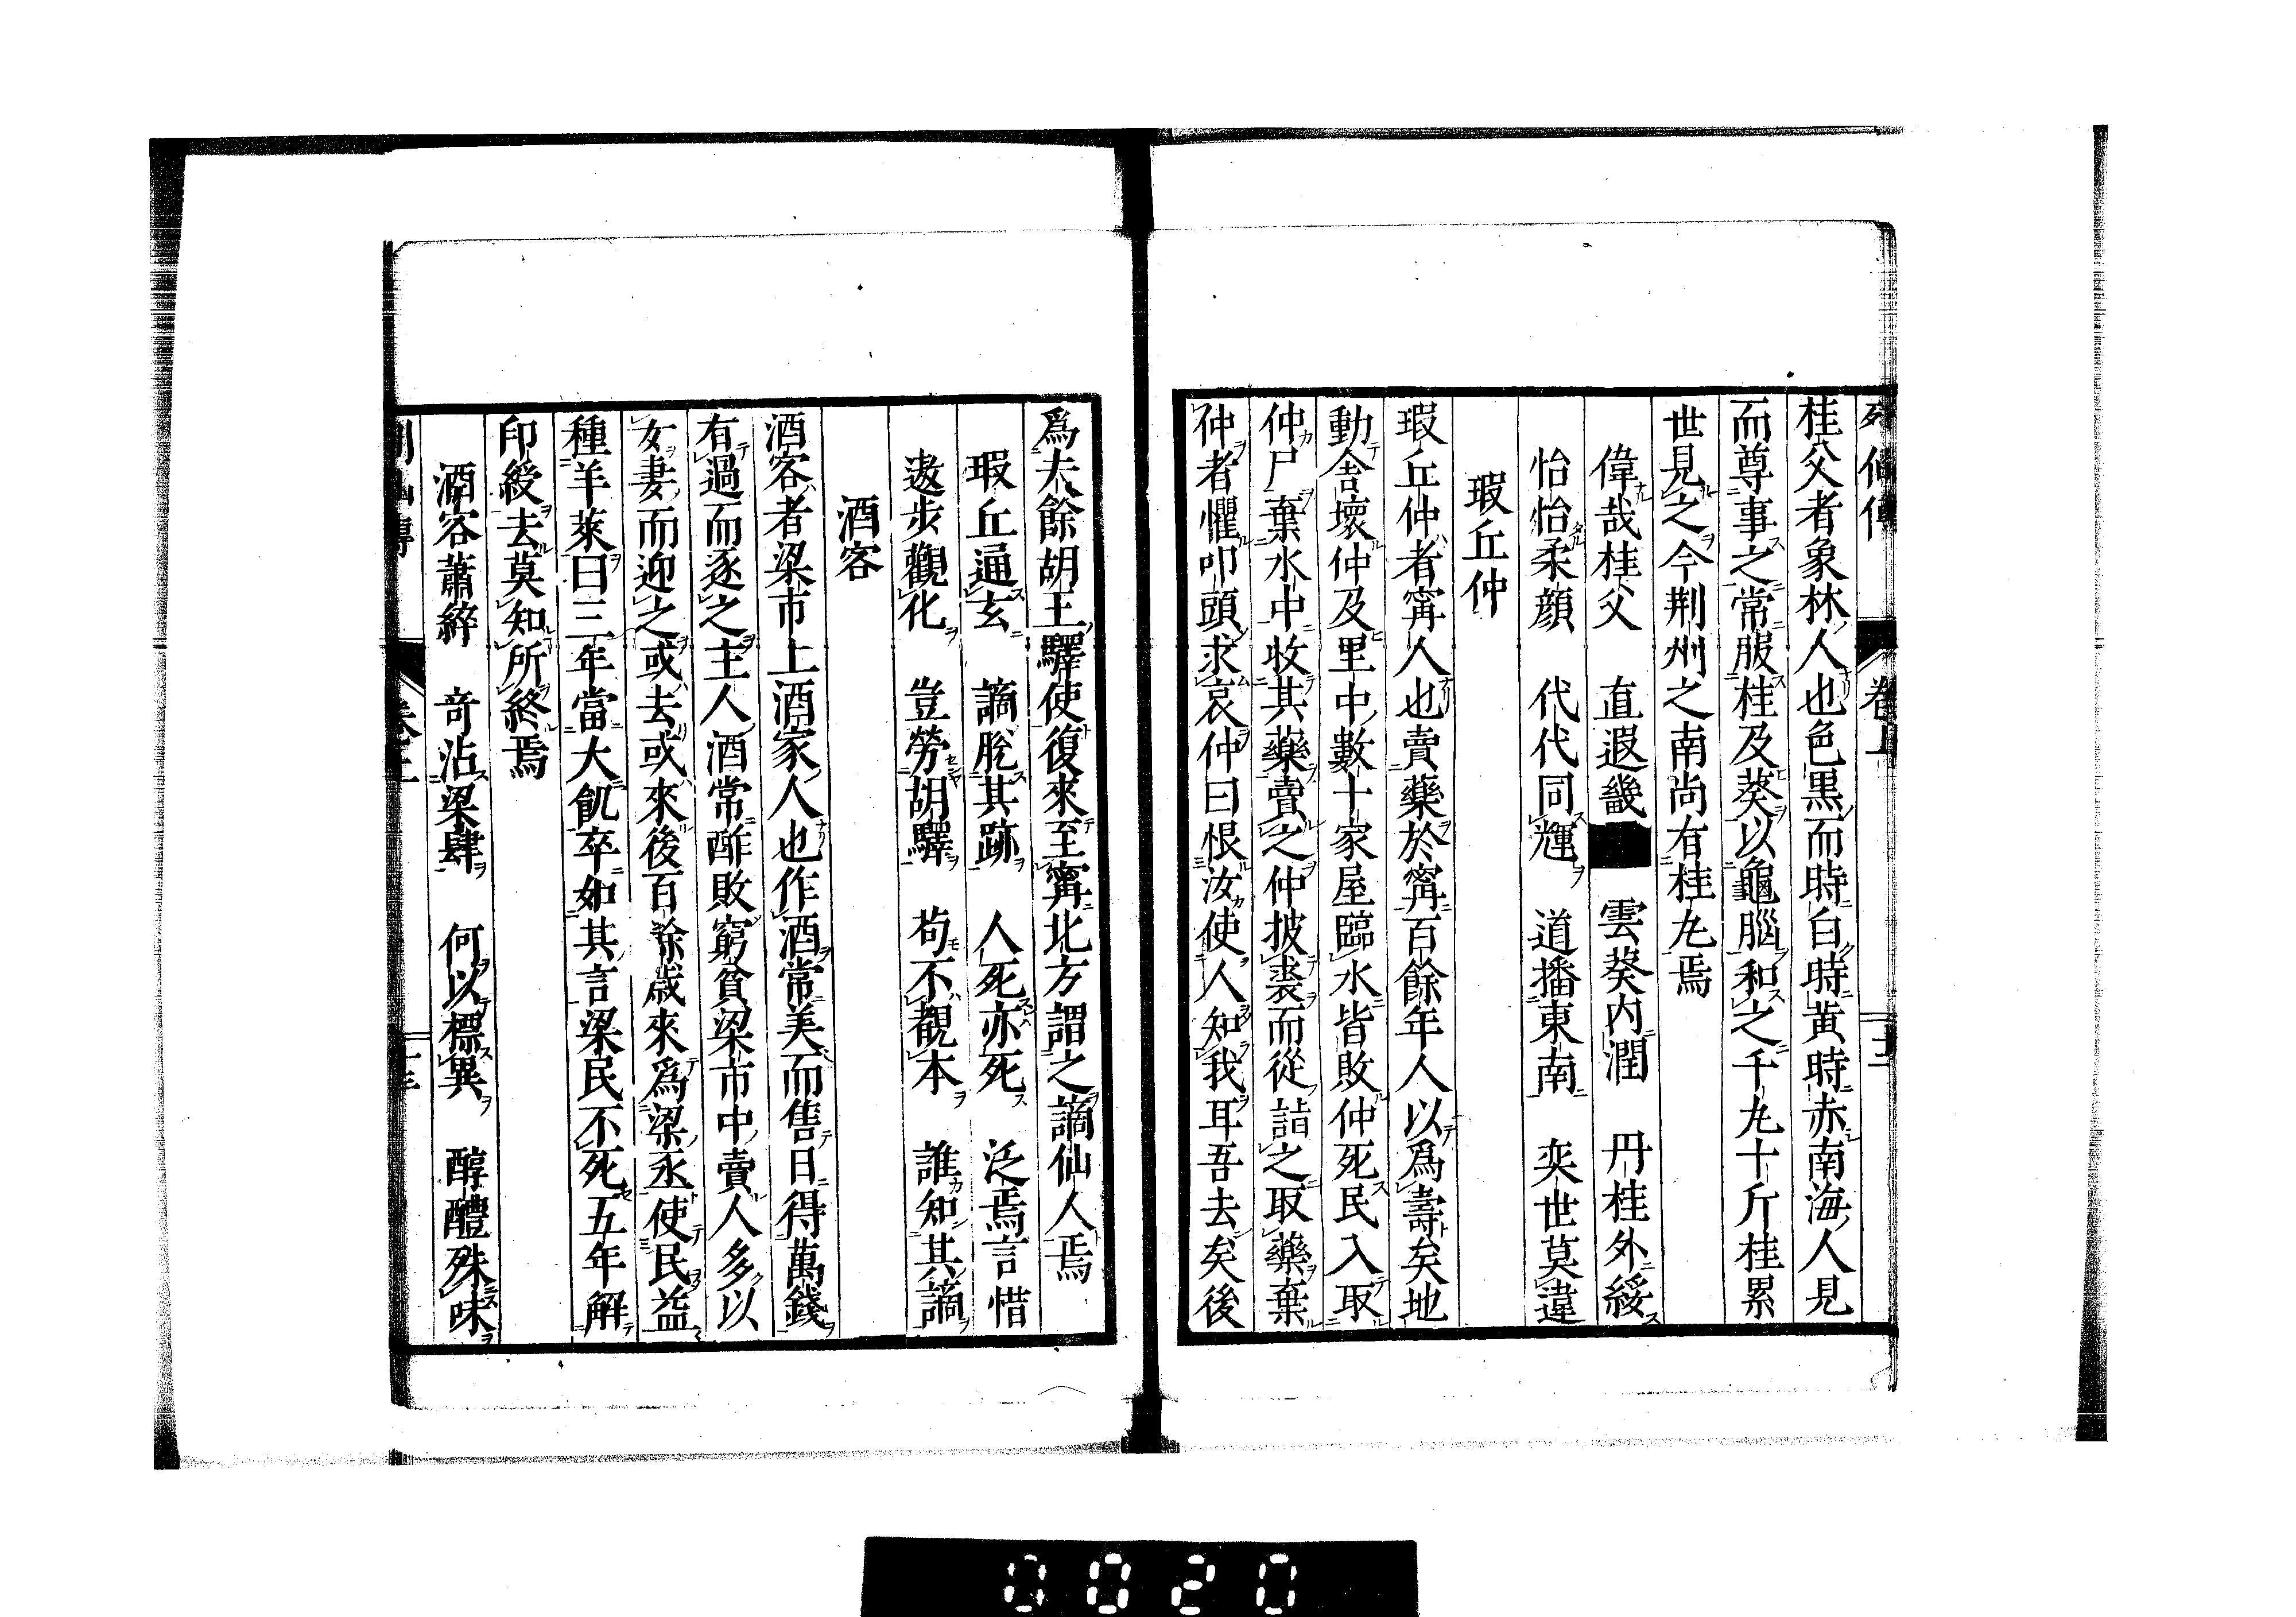 列仙傳 卷上 十二
桂父者象林人也色黒而時白時黄時赤南海人見
而尊事之常服桂及葵以龜腦和之千丸十斤桂累
世見之今荆州之南尚有桂丸焉
偉哉桂父 直遐畿 雲葵内潤 丹桂外綏
怡怡柔顔 代代同輝 道播東南 奕世莫違
瑕丘仲
瑕丘仲者甯人也賣藥於甯百餘年人以爲壽矣地
動舍壞仲及里中數十家屋臨水皆敗仲死民人取
仲尸棄水中收其藥賣之仲披裘而從詣之取藥棄
仲者懼叩頭求哀仲曰恨汝使人知我耳吾去矣後
爲夫餘胡王驛使復來至甯北方謂之謫仙人焉
瑕丘通玄 謫脫其跡 人死亦死 泛焉言惜
遨步觀化 豈勞胡驛 苟不覩本 誰知其謫
酒客
酒客者梁市上酒家人也作酒常美而售日得萬錢
有過而逐之主人酒常酢敗窮貧梁市中賣人多以
女妻而迎之或去或來後百餘歲來爲梁丞使民益
種羊萊曰三年當大飢卒如其言梁民不死五年解
印綬去莫知所終焉
酒客蕭綷 奇沽梁肆 何以標異 醇醴殊味
列仙傳 卷上
0020